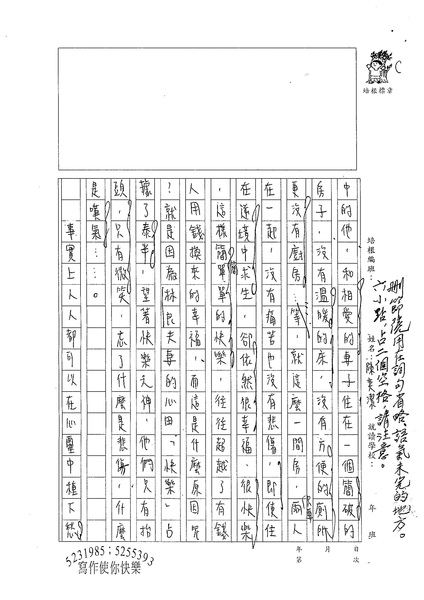 C
培根標章
培根編班：
姓名：陳奕潔
就讀學校：
年 班
刪節號用在詞句省略語氣未完的地方。
六小點，占二個空格，請注意。
中的他，和相愛的妻子住在一個簡破的
房子，沒有溫暖的床，沒有方便的廁所
更沒有廚房…等，就這麼一間房，兩人
在一起，沒有痛苦也沒有悲傷，即使住
在逆境中求生，卻依然很幸福，很快樂
，這樣簡單單的快樂，往往超越了有錢
人用錢換來的幸福，而這是什麼原因呢
？就是因為林良夫妻的心田「快樂」占
據了泰半，望著快樂元神，他們只有抬
頭，只有微笑，忘了什麼是悲傷，什麼
是嘆氣……。
事實上人人都可以在心靈中種下
年 月 日
第 次
5231985；5255393
寫作使你快樂